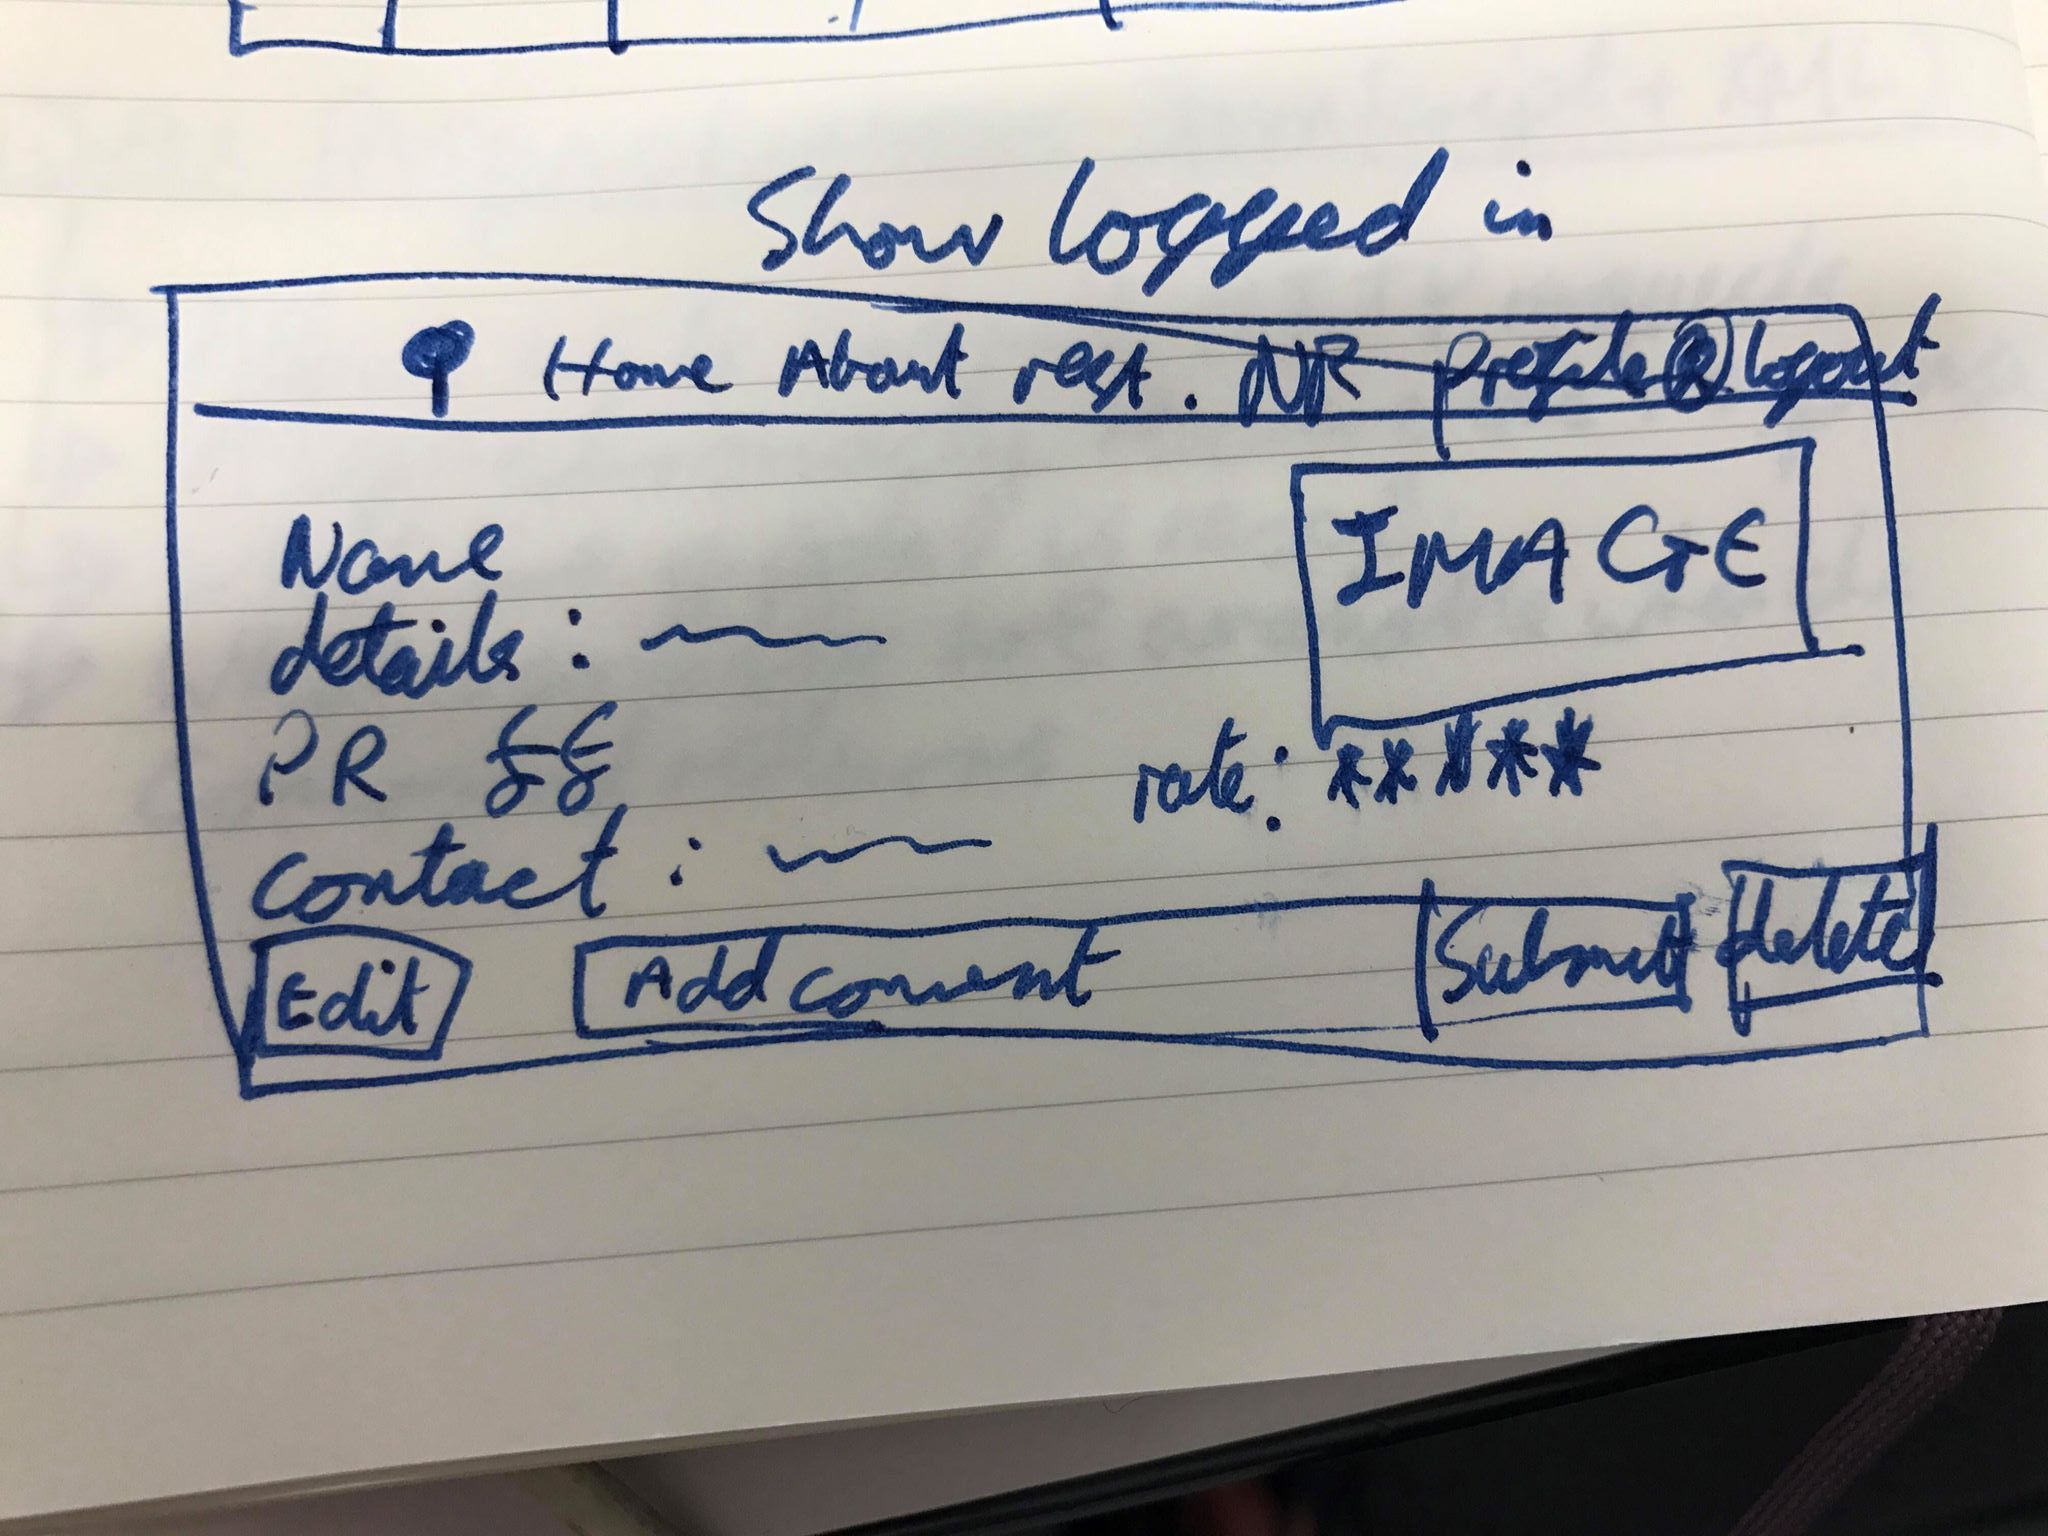 Show logged in
Home About rest. NR Profile logout
IMAGE
Name
details:
PR ££
rate: *****
contact:
Edit Add comment Submit delete